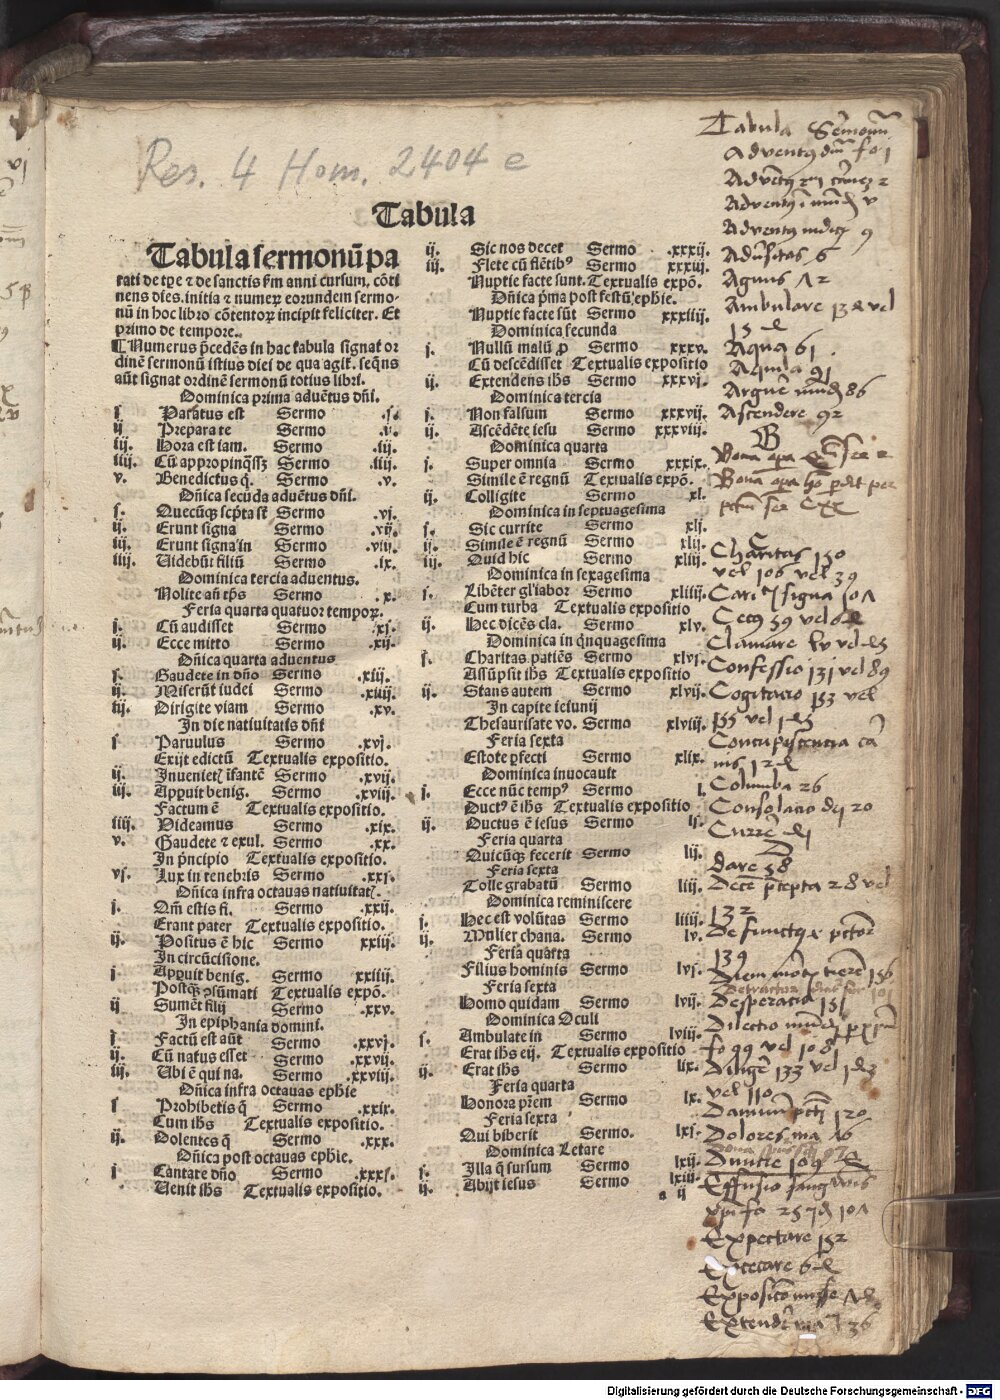 Res. 4 Hom. 2404 e
Tabula
Tabula sermonū pa
rati de tpe ⁊ de sanctis ꝑm anni cursum, cōti
nens dies, initia ⁊ numeꝝ eorundem sermo-
nū in hoc libro cōtentoꝝ incipit feliciter. Et
primo de tempore.
Numerus p̄cedēs in hac tabula signat or
dinē sermonū istius diei de qua agit̃. seqñs
aūt signat ordinē sermonū totius libri.
Dominica prima aduētus dñi.
j Paratus est Sermo .j.
ij Prepara te Sermo .ij.
iij. Hora est iam. Sermo .iij.
iiij. Cū appropinq̄ssꝫ Sermo .iiij.
v. Benedictus q̄. Sermo .v.
Dñica secūda aduētus dñi.
j. Quecūqꝫ scp̄ta st̄ Sermo .vj.
ij. Erunt signa Sermo .vij.
iij. Erunt signa in Sermo .viij.
iiij. Uidebūt filiū Sermo .ix.
Dominica tercia aduentus.
Nolite añ tp̄s Sermo .x.
Feria quarta quatuor tempoꝝ.
j. Cū audisset Sermo .xj.
ij. Ecce mitto Sermo .xij.
Dñica quarta aduentus
j. Gaudete in dño Sermo .xiij.
ij. Miserūt iudei Sermo .xiiij.
iij. Dirigite viam Sermo .xv.
In die natiuitatis dñi
j Paruulus Sermo .xvj.
Exijt edictū Textualis expositio.
ij. Inuenietꝭ īfantē Sermo .xvij.
iij. Apparuit benig. Sermo .xviij.
Factum ē Textualis expositio.
iiij. Videamus Sermo .xix.
v. Gaudete ⁊ exul. Sermo .xx.
In p̄ncipio Textualis expositio.
vj. Lux in tenebris Sermo .xxj.
Dñica infra octauas natiuitatꝭ.
j. Qm̄ estis fi. Sermo .xxij.
Erant pater Textualis expositio.
ij. Positus ē hic Sermo xxiij.
In circūcisione.
j Apparuit benig. Sermo .xxiiij.
Postqꝫ ꝯsūmati Textualis expō.
ij Sumēt filij Sermo .xxv.
In epiphania domini.
j. Factū est aūt Sermo .xxvj.
ij. Cū natus esset Sermo .xxvij.
iij. Ubi ē qui na. Sermo .xxviij.
Dñica infra octauas ephie
j Prohibetis q̄ Sermo .xxix.
Cum ihs Textualis expositio.
ij. Dolentes q̄ Sermo .xxx.
Dñica post octauas ephie.
j Cantate dño Sermo .xxxj.
Uenit ihs Textualis expositio.
ij. Sic nos decet Sermo .xxxij.
iij. Flete cū flētibꝰ Sermo xxxiij.
Nuptie facte sunt. Textualis expō.
Dñica p̄ma post festū ephie.
Nuptie facte sūt Sermo xxxiiij.
Dominica secunda
j. Nullū malū ꝓ Sermo xxxv.
Cū descēdisset Textualis expositio
ij. Extendens ihs Sermo xxxvj.
Dominica tercia
j. Non falsum Sermo xxxvij.
ij. Ascēdēte iesu Sermo xxxviij.
Dominica quarta
j. Super omnia Sermo xxxix.
Simile ē regnū Textualis expō.
ij. Colligite Sermo xl.
Dominica in septuagesima
j. Sic currite Sermo xlj.
ij. Simile ē regnū Sermo xlij.
iij. Quid hic Sermo xliij.
Dominica in sexagesima
j. Libēter gl'iabor Sermo xliiij.
Cum turba Textualis expositio
ij. Hec dicēs cla. Sermo xlv.
Dominica in q̄nquagesima
j. Charitas patiēs Sermo xlvj.
Assūpsit ihs Textualis expositio
ij. Stans autem Sermo xlvij.
In capite ieiunij
Thesaurisate vo. Sermo xlviij.
Feria sexta
Estote ꝑfecti Sermo xlix.
Dominica inuocauit
j. Ecce nūc tempꝰ Sermo l.
Ductꝰ ē ihs Textualis expositio
ij. Ductus ē iesus Sermo lj.
Feria quarta
Quicūqꝫ fecerit Sermo lij.
Feria sexta
Tolle grabatū Sermo liij.
Dominica reminiscere
j. Hec est volūtas Sermo liiij.
ij. Mulier chana. Sermo lv.
Feria quarta
Filius hominis Sermo lvj.
Feria sexta
Homo quidam Sermo lvij.
Dominica Oculi
j. Ambulate in Sermo lviij.
Erat ihs eij. Textualis expositio
ij. Erat ihs Sermo lix.
Feria quarta
Honora p̄rem Sermo lx.
Feria sexta
Qui biberit Sermo. lxj.
Dominica Letare
j. Illa q̄ sursum Sermo lxij.
ij. Abijt iesus Sermo lxiij.
a ij
Tabula Sermonū
Adventꝰ dm̄ fo j
Agnus
Ambulare
Aqua 61
Aquila 91
Ascendere 92
B
C
Charitas 130
vel 106 vel 39
Clamare
Confessio 131 vel 89
Cogitatio
Columba 26
D
dare 38
132
139
Desperatio 151
Dilectio
fo 99 vel 108
vel 110
Dolores
Effusio sanguinis
Expectare
Digitalisierung gefördert durch die Deutsche Forschungsgemeinschaft - DFG